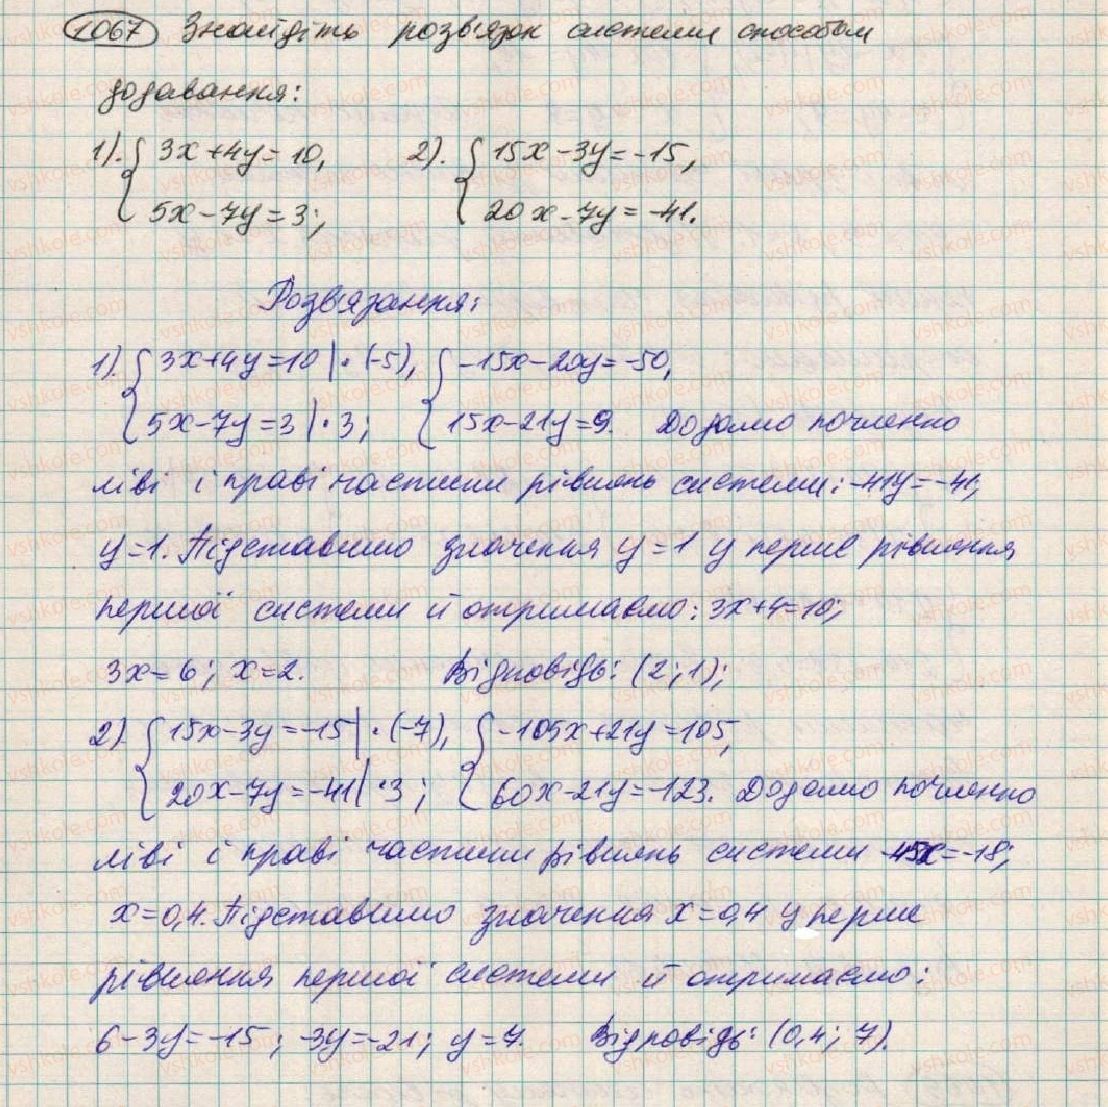 1067 Знайдіть розв'язок системи способом
додавання:
1). { 3x+4y=10, 2). { 15x-3y=-15,
5x-7y=3; 20x-7y=-41.
Розв'язання:
1). { 3x+4y=10 | · (-5), { -15x-20y=-50,
5x-7y=3 | · 3; 15x-21y=9. Додамо почленно
ліві і праві частини рівнянь системи: -41y=-41,
y=1. Підставимо значення y=1 у перше рівняння
першої системи й отримаємо: 3x+4=10;
3x=6; x=2. Відповідь: (2; 1);
2). { 15x-3y=-15 | · (-7), { -105x+21y=105,
20x-7y=-41 | · 3; 60x-21y=-123. Додамо почленно
ліві і праві частини рівнянь системи -45x=-18;
x=0,4. Підставимо значення x=0,4 у перше
рівняння першої системи й отримаємо:
6-3y=-15; -3y=-21; y=7. Відповідь: (0,4; 7).